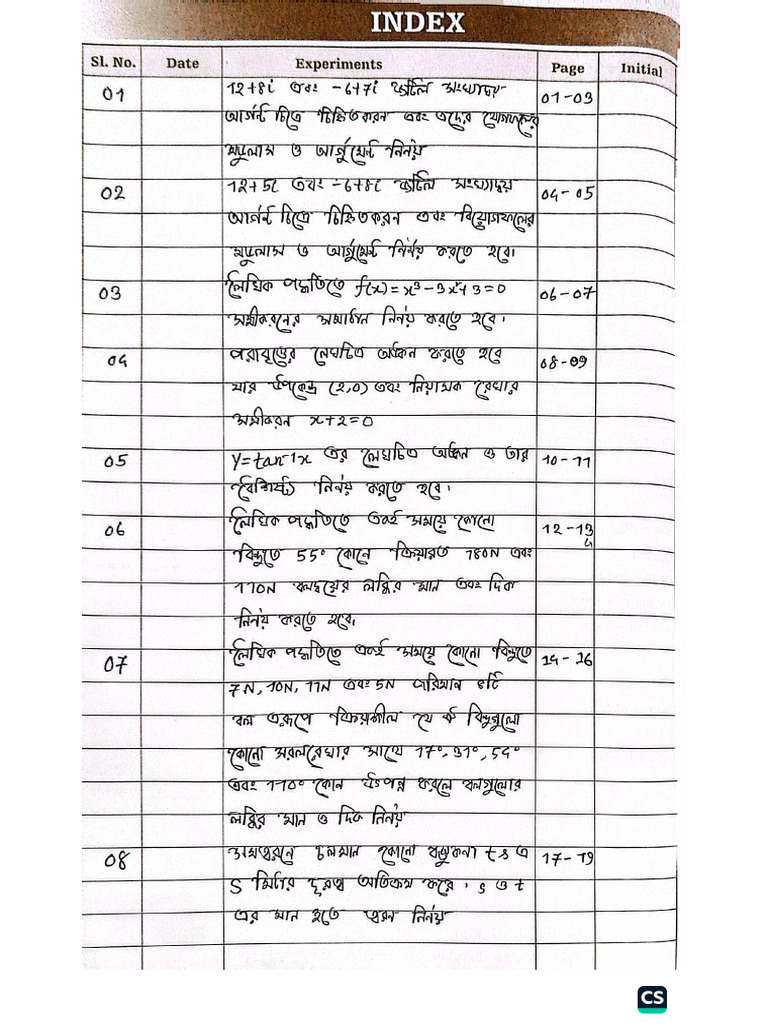 INDEX
Sl. No. Date Experiments Page Initial
01 12+8i এবং -6+7i জটিল সংখ্যাদ্বয় 01-03
আর্গন্ড চিত্রে চিহ্নিতকরন এবং এদের যোগফলের
মডুলাস ও আর্গুমেন্ট নির্নয়
02 12+5i এবং -6+8i জটিল সংখ্যাদ্বয় 04-05
আর্গন্ড চিত্রে চিহ্নিতকরন এবং বিয়োগফলের
মডুলাস ও আর্গুমেন্ট নির্নয় করতে হবে।
03 লৈখিক পদ্ধতিতে f(x)=x³-3x²+3=0 06-07
সমীকরনের সমাধান নির্নয় করতে হবে।
04 পরাবৃত্তের লেখচিত্র অঙ্কন করতে হবে 08-09
যার উপকেন্দ্র (2,0) এবং নিয়ামক রেখার
সমীকরন x+2=0
05 y=tan⁻¹x এর লেখচিত্র অঙ্কন ও তার 10-11
বৈশিষ্ট্য নির্নয় করতে হবে।
06 লৈখিক পদ্ধতিতে একই সময়ে কোনো 12-13
বিন্দুতে 55° কোনে ক্রিয়ারত 180N এবং
110N বলদ্বয়ের লব্ধির মান এবং দিক
নির্নয় করতে হবে।
07 লৈখিক পদ্ধতিতে একই সময়ে কোনো বিন্দুতে 14-16
7N, 10N, 11N এবং 5N পরিমান ৪টি
বল এরূপে ক্রিয়াশীল যে বিন্দুগুলো
কোনো সরলরেখার সাথে 17°, 31°, 54°
এবং 110° কোন উৎপন্ন করলে বলগুলোর
লব্ধির মান ও দিক নির্নয়
08 সমত্বরনে চলমান কোনো বস্তুকনা t s এ 17-19
S মিটার দূরত্ব অতিক্রম করে। s ও t
এর মান হতে ত্বরন নির্নয়
CS